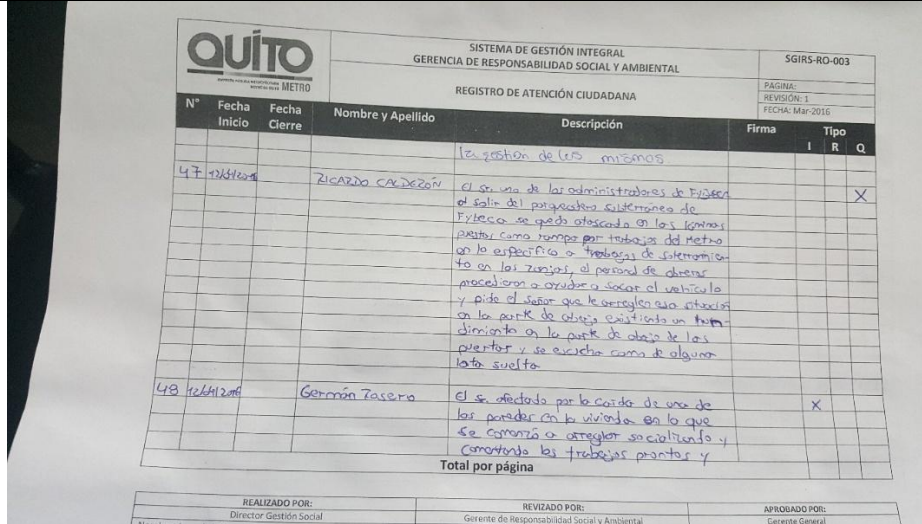 QUITO
METRO
SISTEMA DE GESTIÓN INTEGRAL
GERENCIA DE RESPONSABILIDAD SOCIAL Y AMBIENTAL
REGISTRO DE ATENCIÓN CIUDADANA
SGIRS-RO-003
PAGINA:
REVISIÓN: 1
FECHA: Mar-2016
N° Fecha Inicio Fecha Cierre Nombre y Apellido Descripción Firma Tipo
I R Q
la gestion de los mismos
47 RICARDO CALDERÓN El sr. uno de los administradores de Fybeca X
al salir del parqueadero subterráneo de
Fybeca se quedo atascado en las láminas
puestas como rampa por trabajos del Metro
en lo especifico a trabajos de soterramien-
to en las zanjas, el personal de obreros
procedieron a ayudar a sacar el vehículo
y pide el señor que le arreglen esa situación
en la parte de abajo existiendo un hun-
dimiento en la parte de abajo de las
puertas y se escucha como de alguna
lata suelta
48 Germán El sr. afectado por la caida de una de X
las paredes en la vivienda en lo que
se comenzó a arreglar socializando y
comentando los trabajos prontos y
Total por página
REALIZADO POR: REVIZADO POR: APROBADO POR:
Director Gestión Social Gerente de Responsabilidad Social y Ambiental Gerente General